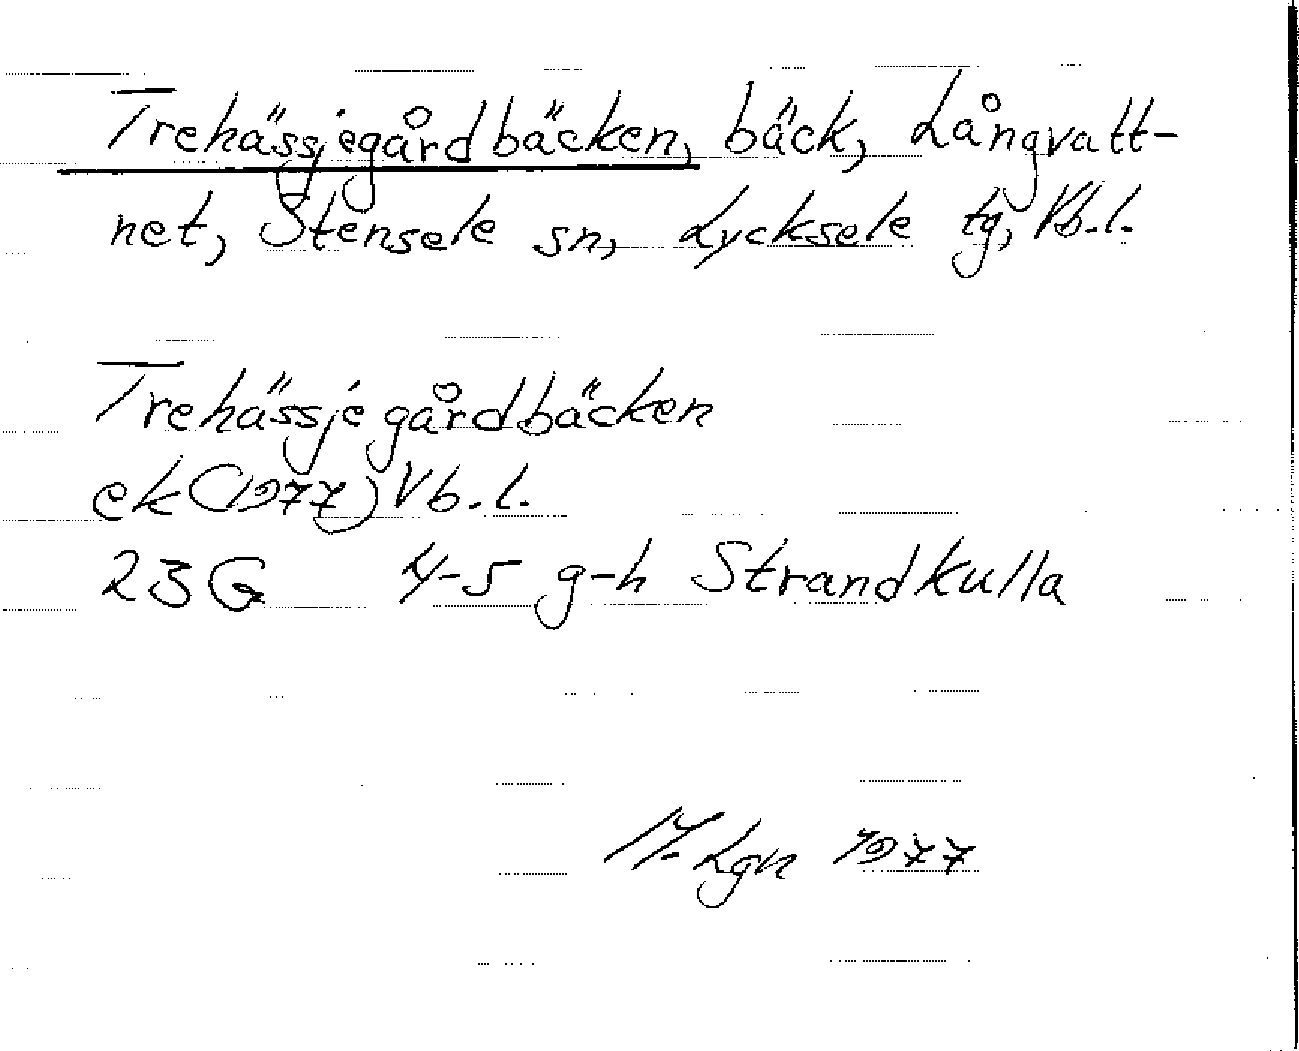 Trehässjegårdbäcken, bäck, Långvatt-
net, Stensele sn, Lycksele tg, Vb.l.
Trehässjegårdbäcken
ek (1977) Vb.l.
23 G 4-5 g-h Strandkulla
M. Lgn 1977